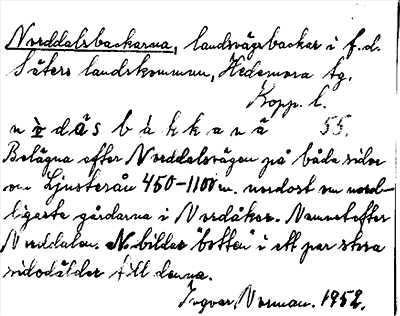 Norddalsbackarna, landsvägsbackar i f.d.
Säters landskommun, Hedemora tg.
Kopp. l.
n ò d å s b à k k a n ä 55.
Belägna efter Norddalsvägen på båda sidor
om Ljusterån 450-1100 m. nordost om nord-
ligaste gårdarna i Nordåker. Namnet efter
Norddalen. N. bildar "botten" i ett par stora
sidodälder till denna.
Ingvar Norman. 1952.